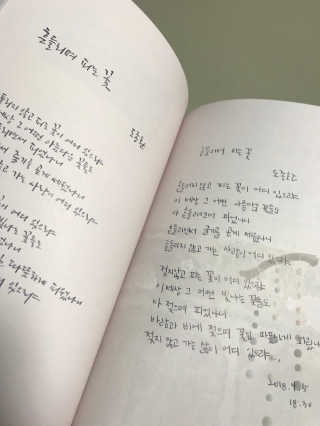 흔들리며 피는 꽃
도종환
들리지 않고 피는 꽃이 어디 있으랴
그 어떤 아름다운 꽃들도
피었나니
줄기를 곧게 세웠나니
고 가는 사랑이 어디 있으랴
어디 있으랴
빛나는 꽃들도
나니
따뜻하게 피웠나니
있으랴
흔들리며 피는 꽃
도종환
흔들리지 않고 피는 꽃이 어디 있으랴
이 세상 그 어떤 아름다운 꽃들도
다 흔들리면서 피었나니
흔들리면서 줄기를 곧게 세웠나니
흔들리지 않고 가는 사랑이 어디 있으랴
젖지 않고 피는 꽃이 어디 있으랴
이 세상 그 어떤 빛나는 꽃들도
다 젖으며 피었나니
바람과 비에 젖으며 꽃잎 따뜻하게 피웠나니
젖지 않고 가는 삶이 어디 있으랴
18.30